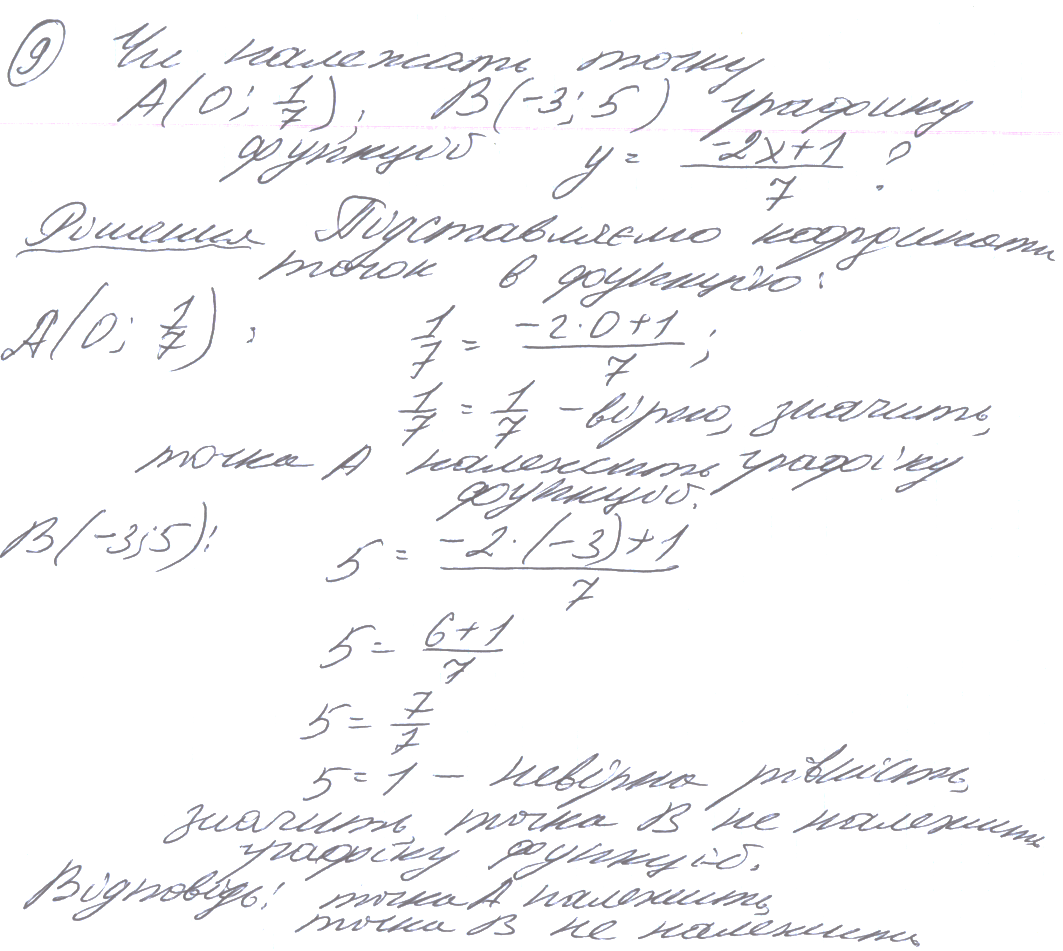 9 Чи належать точку
A(0; 1/7), B(-3; 5) графику
функції y = (-2x+1)/7 ?
Рішення Підставляємо координати
точок в функцію:
A(0; 1/7): 1/7 = (-2·0+1)/7;
1/7 = 1/7 – вірно, значить,
точка A належить графіку
функції.
B(-3;5): 5 = (-2·(-3)+1)/7
5 = (6+1)/7
5 = 7/7
5 = 1 – невірна рівність,
значить, точка B не належить
графіку функції.
Відповідь: точка A належить,
точка B не належить